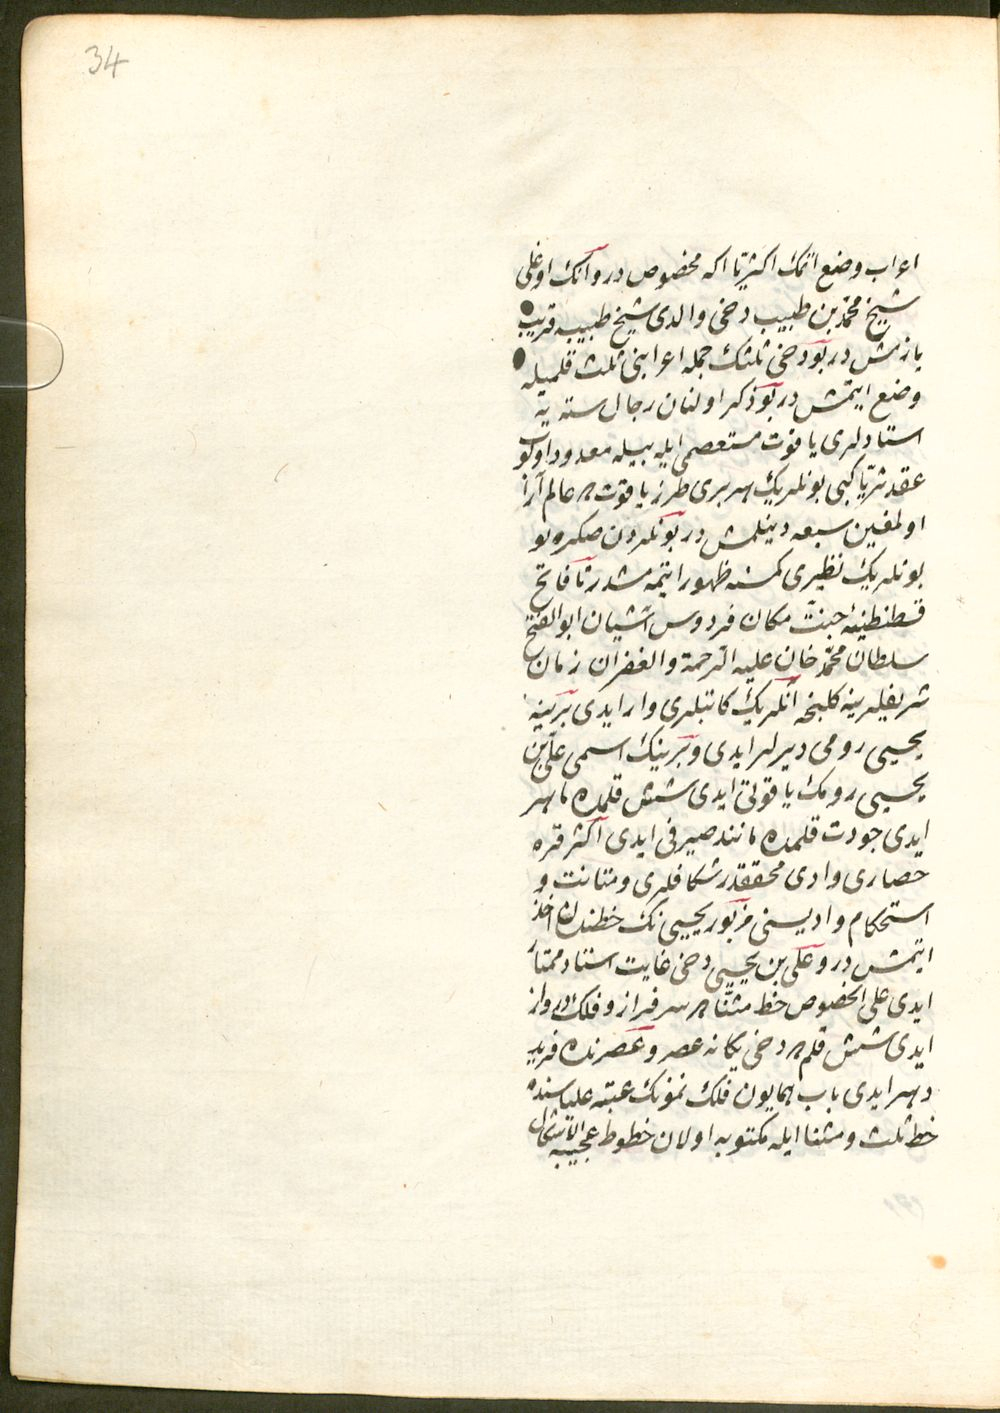 34
اعراب وضع اتمك اكثريا اكه مخصوص در وآنك اوغلى
شيخ محمد بن طبيب دخى والدى شيخ طبيبه قريب
يازمش در بو دخى ثلثك جمله اعرابنى ثلث قلميله
وضع ايتمش در بو ذكر اولنان رجال سته يه
استادلرى ياقوت مستعصمى ايله بيله معدود اولوب
عقد ثريا كبى بونلريك هر برى طرز ياقوتده عالم آرا
اولمغين سبعه دينلمش در بونلردن صكره بو
بونلريك نظيرى كمسنه ظهور ايتمه مشدر تا فاتح
قسطنطنيه جنت مكان فردوس آشيان ابو الفتح
سلطان محمد خان عليه الرحمة والغفران زمان
شريفلرينه كلنجه آنلريك كاتبلرى وار ايدى برينه
يحيى رومى ديرلر ايدى وبرينك اسمى على بن
يحيى رومك ياقوتى ايدى شش قلمده ماهر
ايدى جودت قلمده مانند صيرفى ايدى اكثر قره
حصارى وادى محققدر شكافلرى ومتانت و
استحكام واديسنى مزبور يحيى نك خطندن اخذ
ايتمش در وعلى بن يحيى دخى غايت استاد ممتاز
ايدى على الخصوص خط مثناده سرفراز وفلك پرواز
ايدى شش قلمده دخى يكانه عصر وعصرنده فريد
دهر ايدى باب همايون فلك نمونك عتبه علياسنده
خط ثلث ومثنا ايله مكتوبه اولان خطوط عجيبة الاشكال